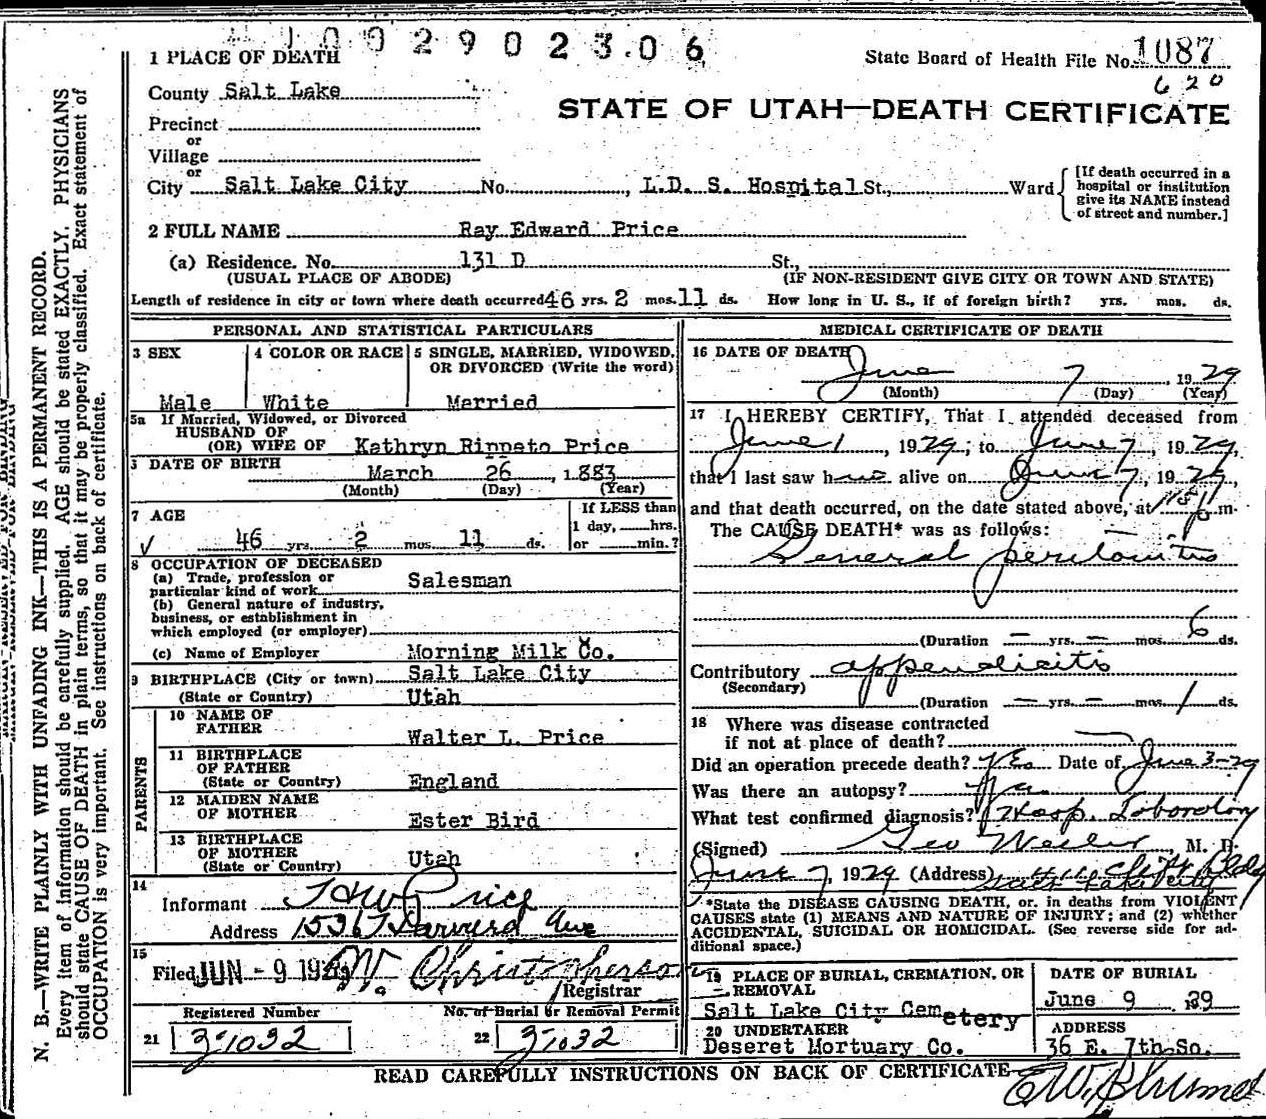 1 0 0 2 9 0 2 3 0 6
1 PLACE OF DEATH
State Board of Health File No. 1087
620
County Salt Lake
STATE OF UTAH—DEATH CERTIFICATE
Precinct
or
Village
or
City Salt Lake City No. , L.D. S. Hospital St., Ward
[If death occurred in a hospital or institution give its NAME instead of street and number.]
2 FULL NAME Ray Edward Price
(a) Residence. No. 131 D St.,
(USUAL PLACE OF ABODE) (IF NON-RESIDENT GIVE CITY OR TOWN AND STATE)
Length of residence in city or town where death occurred 46 yrs. 2 mos. 11 ds. How long in U. S., if of foreign birth? yrs. mos. ds.
PERSONAL AND STATISTICAL PARTICULARS
3 SEX 4 COLOR OR RACE 5 SINGLE, MARRIED, WIDOWED,
OR DIVORCED (Write the word)
Male White Married
5a If Married, Widowed, or Divorced
HUSBAND OF
(OR) WIFE OF Kathryn Rippeto Price
DATE OF BIRTH
March 26 , 1883
(Month) (Day) (Year)
7 AGE If LESS than
1 day, hrs.
46 yrs. 2 mos. 11 ds. or min.?
8 OCCUPATION OF DECEASED
(a) Trade, profession or
particular kind of work Salesman
(b) General nature of industry,
business, or establishment in
which employed (or employer)
(c) Name of Employer Morning Milk Co.
9 BIRTHPLACE (City or town) Salt Lake City
(State or Country) Utah
PARENTS
10 NAME OF
FATHER Walter L. Price
11 BIRTHPLACE
OF FATHER
(State or Country) England
12 MAIDEN NAME
OF MOTHER Ester Bird
13 BIRTHPLACE
OF MOTHER
(State or Country) Utah
14
Informant Price
Address 1536 Harvard Ave
15
Filed JUN - 9 1929 W. Christopherson
Registrar
Registered Number No. of Burial or Removal Permit
21 31032 22 31032
MEDICAL CERTIFICATE OF DEATH
16 DATE OF DEATH
June 7 , 1929
(Month) (Day) (Year)
17 I HEREBY CERTIFY, That I attended deceased from
June 1 , 1929, to June 7, 1929,
that I last saw him alive on June 7, 1929,
and that death occurred, on the date stated above, at m.
The CAUSE OF DEATH* was as follows:
General peritonitis
(Duration — yrs. — mos. 6 ds.
Contributory appendicitis
(Secondary)
(Duration — yrs. — mos. 1 ds.
18 Where was disease contracted
if not at place of death?
Did an operation precede death? Yes Date of June 3-29
Was there an autopsy?
What test confirmed diagnosis? Hosp. Laboratory
(Signed) Geo , M. D.
June 7, 1929 (Address) Clift Bldg
Salt Lake City
*State the DISEASE CAUSING DEATH, or. in deaths from VIOLENT
CAUSES state (1) MEANS AND NATURE OF INJURY; and (2) whether
ACCIDENTAL, SUICIDAL OR HOMICIDAL. (See reverse side for ad-
ditional space.)
19 PLACE OF BURIAL, CREMATION, OR DATE OF BURIAL
REMOVAL
Salt Lake City Cemetery June 9 29
20 UNDERTAKER ADDRESS
Deseret Mortuary Co. 36 E. 7th So.
READ CAREFULLY INSTRUCTIONS ON BACK OF CERTIFICATE
N. B.—WRITE PLAINLY WITH UNFADING INK—THIS IS A PERMANENT RECORD.
Every item of information should be carefully supplied. AGE should be stated EXACTLY. PHYSICIANS
should state CAUSE OF DEATH in plain terms, so that it may be properly classified. Exact statement of
OCCUPATION is very important. See instructions on back of certificate.